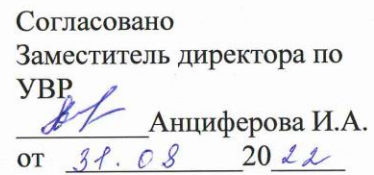 Согласовано
Заместитель директора по
УВР
Анциферова И.А.
от 31.08 2022